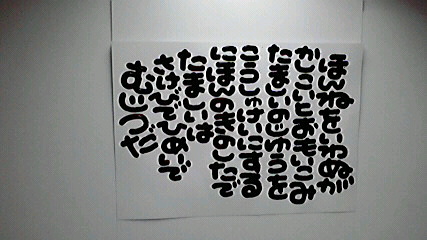 ほんねをいわぬが
かしこいとおもいこみ
たましいのじゆうを
こうしゅけいにする
にほんのきのしたで
たましいは
さけびでひめいで
むじつだ